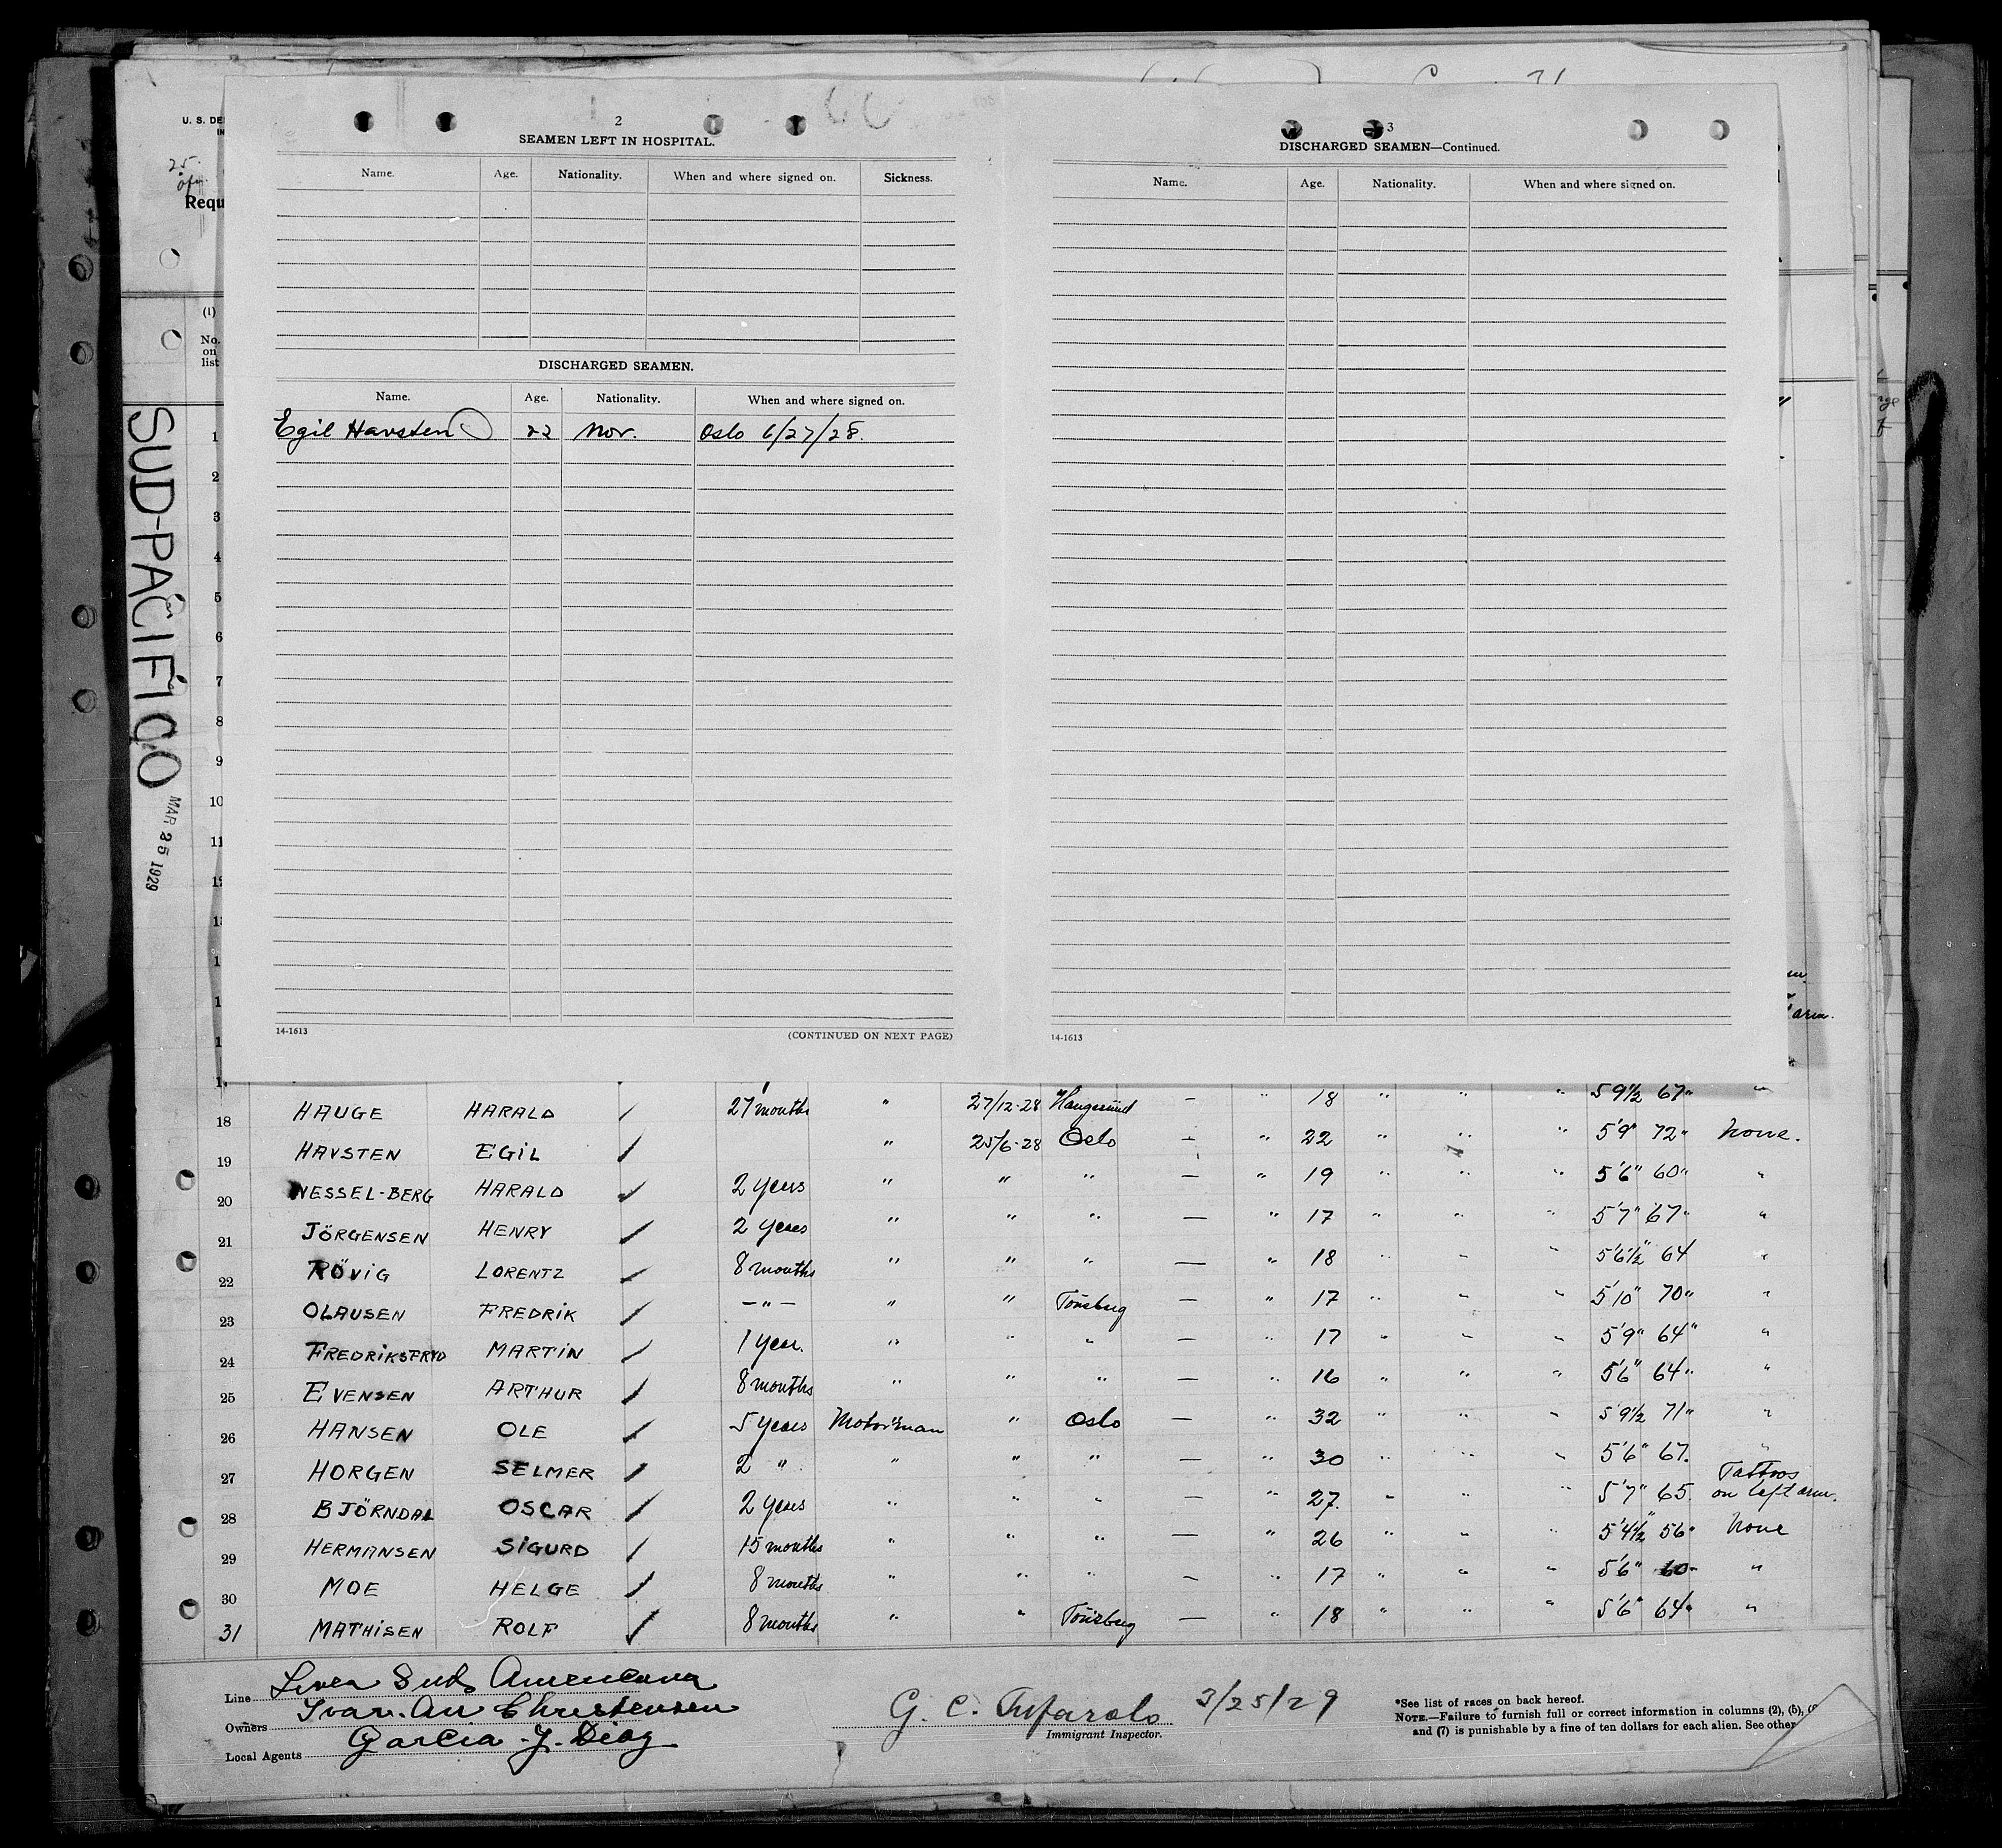 U. S. DE
IN
25.
Requ
(1)
No.
on
list
SUD-PACIFICO
MAR 25 1929
2
SEAMEN LEFT IN HOSPITAL.
Name. Age. Nationality. When and where signed on. Sickness.
DISCHARGED SEAMEN.
Name. Age. Nationality. When and where signed on.
Egil Havsten 22 Nor. Oslo 6/27/28.
14-1613
(CONTINUED ON NEXT PAGE)
3
DISCHARGED SEAMEN—Continued.
Name. Age. Nationality. When and where signed on.
14-1613
1
2
3
4
5
6
7
8
9
10
11
12
arm.
18 HAUGE HARALD ✓ 27 months " 27/12-28 Haugesund — " 18 " " " 5 9½ 67" "
19 HAVSTEN EGIL ✓ " 25/6-28 Oslo — " 22 " " " 5'9" 72" None.
20 WESSEL-BERG HARALD ✓ 2 years " " " — " 19 " " " 5'6" 60" "
21 JÖRGENSEN HENRY ✓ 2 years " " " — " 17 " " " 5'7" 67" "
22 RÖVIG LORENTZ ✓ 8 months " " " — " 18 " " " 5'6½" 64 "
23 OLAUSEN FREDRIK ✓ —"— " " Tönsberg — " 17 " " " 5'10" 70" "
24 FREDRIKSFRYD MARTIN ✓ 1 year. " " " — " 17 " " " 5'9" 64" "
25 EVENSEN ARTHUR ✓ 8 months " " " — " 16 " " " 5'6" 64" "
26 HANSEN OLE ✓ 5 years Motorman " Oslo — " 32 " " " 5'9½ 71" "
27 HORGEN SELMER ✓ 2 " " " " — " 30 " " " 5'6" 67. "
28 BJÖRNDAL OSCAR ✓ 2 years " " " — " 27. " " " 5'7" 65. Tattoos on left arm.
29 HERMANSEN SIGURD ✓ 15 months " " " — " 26 " " " 5'4½" 56" None
30 MOE HELGE ✓ 8 months " " " — " 17 " " " 5'6" 60" "
31 MATHISEN ROLF ✓ 8 months " " Tönsberg — " 18 " " " 5'6" 64" "
Line Linea Sud Americana
Owners Ivar. An Christensen
Local Agents Garcia. y. Diaz
G. C. Tufarolo 3/25/29
Immigrant Inspector.
*See list of races on back hereof.
NOTE.—Failure to furnish full or correct information in columns (2), (5), (6
and (7) is punishable by a fine of ten dollars for each alien. See other